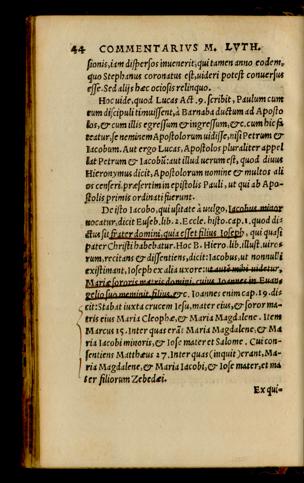 44 COMMENTARIVS M. LVTH.
ssionis, iam dispersos inuenerit, qui tamen anno eodem,
quo Stephanus coronatus est, uideri potest conuersus
esse. Sed alijs hæc ociosis relinquo.
Hoc uide, quod Lucas Act. 9. scribit, Paulum cum
eum discipuli timuissent, à Barnaba ductum ad Aposto
los, & cum illis egressum & ingressum, &c. cum hic fa
teatur, se neminem Apostolorum uidisse, nisi Petrum &
Iacobum. Aut ergo Lucas, Apostolos pluraliter appel
lat Petrum & Iacobũ: aut illud uerum est, quod diuus
Hieronymus dicit, Apostolorum nomine & multos ali
os censeri, præsertim in epistolis Pauli, ut qui ab Apo-
stolis primis ordinati fuerunt.
De isto Iacobo, qui usitatè à uulgo, Iacobus minor
uocatur, dicit Euseb. lib. 2. Eccle. histo. cap. 1. quod di-
ctus sit frater domini, quia esset filius Ioseph, qui quasi
pater Christi habebatur. Hoc B. Hiero. lib. illust. uiro-
rum, recitans & dissentiens, dicit: Iacobus, ut nonnulli
existimant, Ioseph ex alia uxore: ut autẽ mihi uidetur,
Mariæ sororis matris domini, cuius Ioannes in Euan
gelio suo meminit, filius, &c. Ioannes enim cap. 19. di-
cit: Stabat iuxta crucem Iesu, mater eius, & soror ma-
tris eius Maria Cleophæ, & Maria Magdalene. Item
Marcus 15. Inter quas erãt Maria Magdalene, & Ma
ria Iacobi minoris, & Iose mater et Salome. Cui con-
sentiens Matthæus 27. Inter quas (inquit) erant, Ma-
ria Magdalene, & Maria Iacobi, & Iose mater, et ma
ter filiorum Zebedæi.
Ex qui-